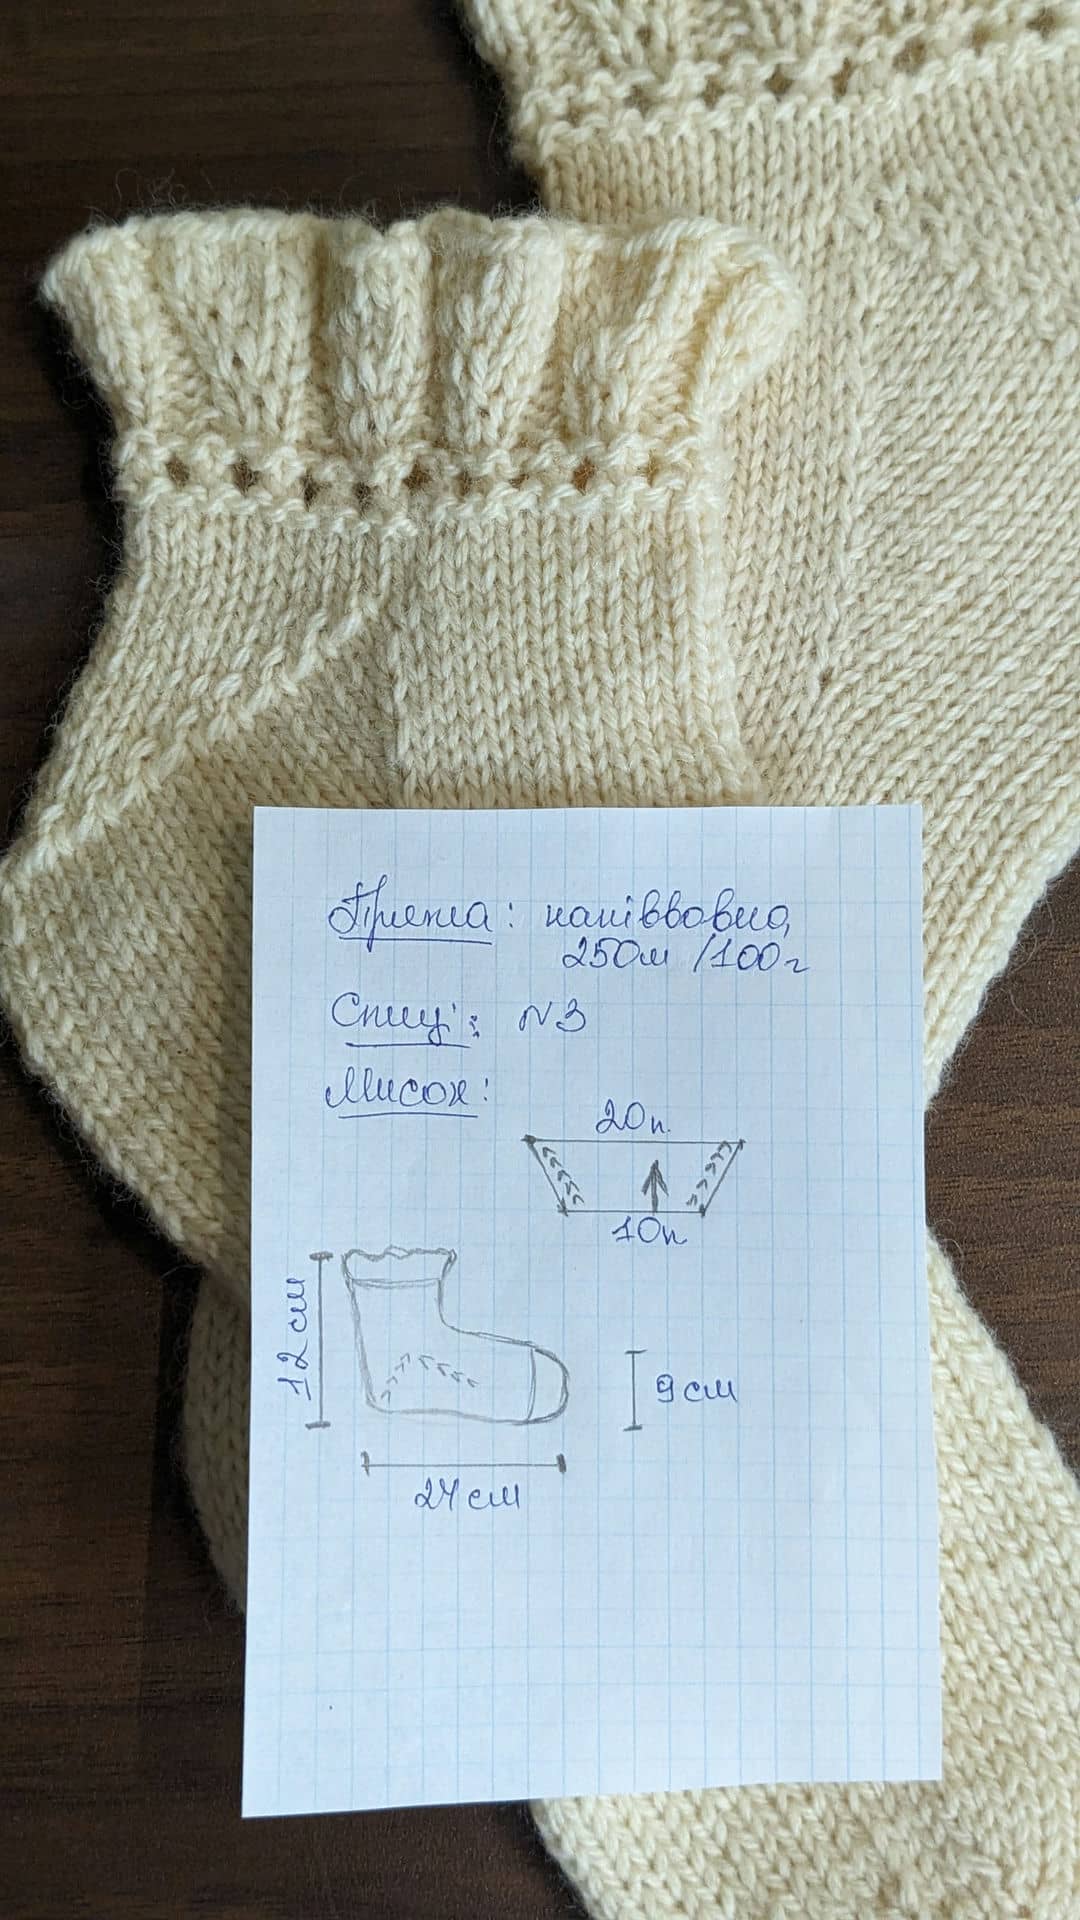 Пряжа: напіввовна,
250м /100г
Спиці: №3
Мисок:
20п.
10п
12 см
9 см
24 см